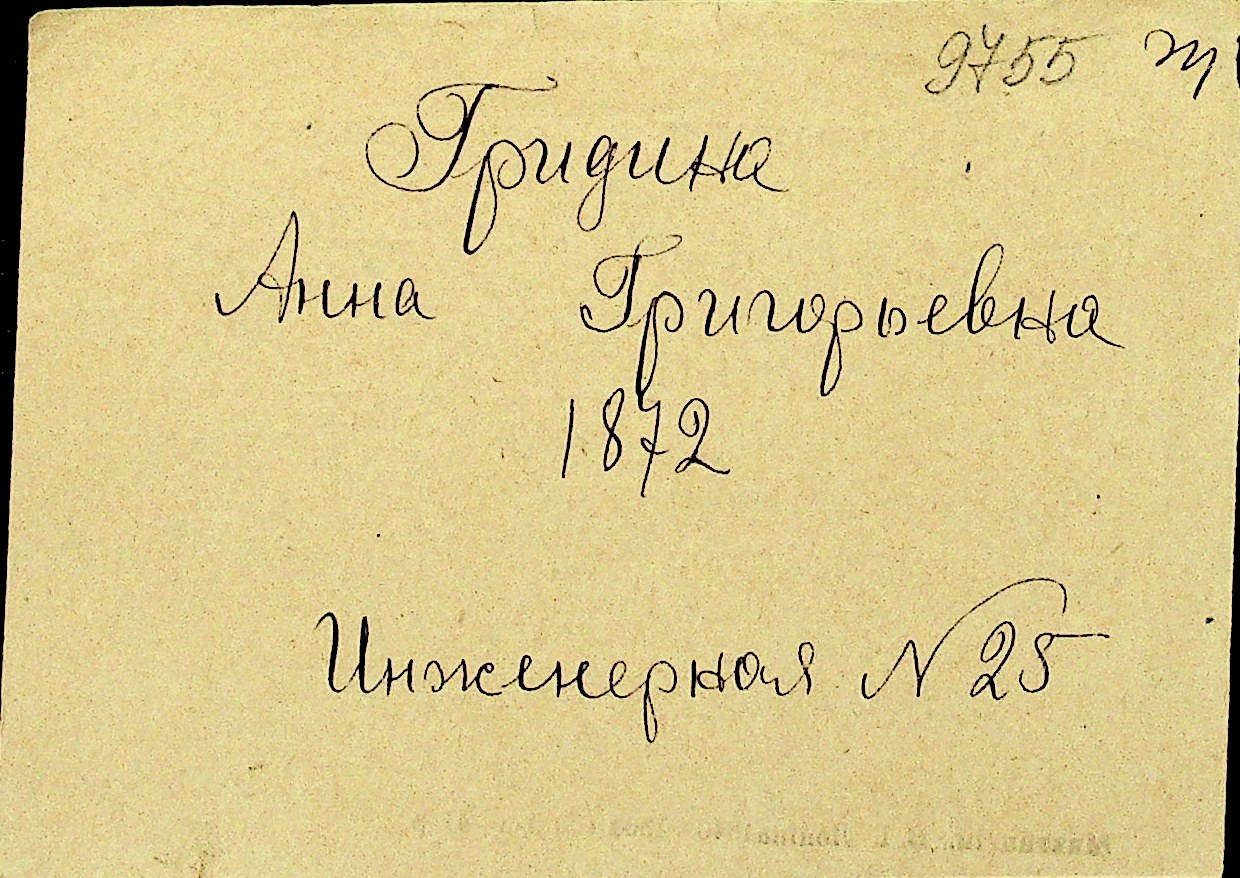 9755 т
Гридина
Анна Григорьевна
1872
Инженерная N 25